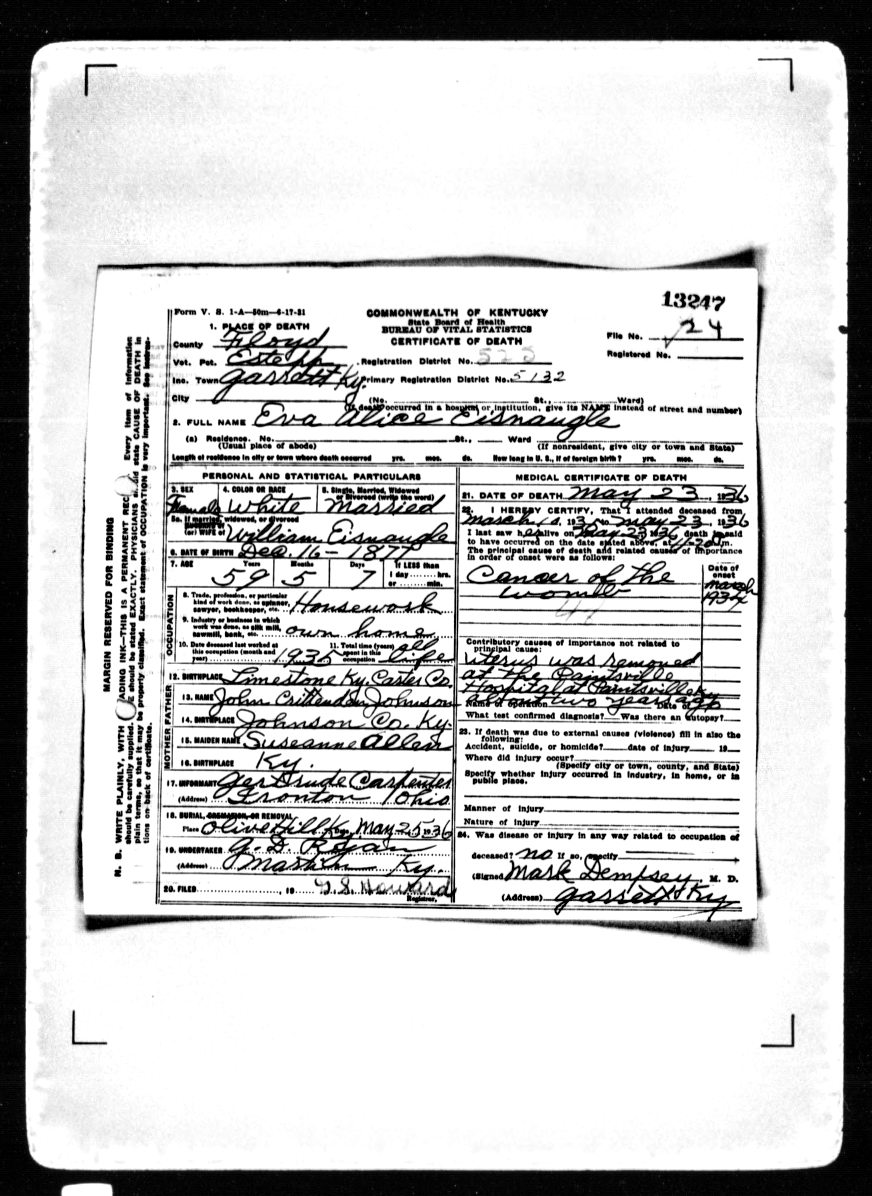 13247
Form V. S. 1-A—50m—6-17-31
COMMONWEALTH OF KENTUCKY
State Board of Health
BUREAU OF VITAL STATISTICS
CERTIFICATE OF DEATH
File No. 24
Registered No.
1. PLACE OF DEATH
County Floyd
Vot. Pct. Estepp Registration District No. 525
Inc. Town Garrett Ky. Primary Registration District No. 5132
City (No. St., Ward)
(If death occurred in a hospital or institution, give its NAME instead of street and number)
2. FULL NAME Eva Alice Eisnaugle
(a) Residence. No. St., Ward
(Usual place of abode) (If nonresident, give city or town and State)
Length of residence in city or town where death occurred yrs. mos. ds. How long in U. S., if of foreign birth? yrs. mos. ds.
PERSONAL AND STATISTICAL PARTICULARS
3. SEX 4. COLOR OR RACE 5. Single, Married, Widowed
or Divorced (write the word)
Female White Married
5a. If married, widowed, or divorced
HUSBAND of
(or) WIFE of William Eisnaugle
6. DATE OF BIRTH Dec. 16 - 1877
7. AGE Years Months Days If LESS than
1 day hrs.
or min.
59 5 7
OCCUPATION
8. Trade, profession, or particular
kind of work done, as spinner,
sawyer, bookkeeper, etc. Housework
9. Industry or business in which
work was done, as silk mill,
sawmill, bank, etc. own home
10. Date deceased last worked at
this occupation (month and
year) 1935
11. Total time (years)
spent in this
occupation all life
12. BIRTHPLACE Limestone Ky. Carter Co.
FATHER
13. NAME John Crittendon Johnson
14. BIRTHPLACE Johnson Co. Ky.
MOTHER
15. MAIDEN NAME Suseanne Allen
16. BIRTHPLACE Ky.
17. INFORMANT Gertrude Carpenter
(Address) Ironton Ohio
18. BURIAL, CREMATION, OR REMOVAL
Place Olive Hill Ky. Date May 25 1936
19. UNDERTAKER G. D. Ryan
(Address) Martin Ky.
20. FILED , 19 G. S. Howard
Registrar.
MEDICAL CERTIFICATE OF DEATH
21. DATE OF DEATH May 23, 1936
22. I HEREBY CERTIFY, That I attended deceased from
March 193 to May 23, 1936
I last saw her alive on May 23 1936 death is said
to have occurred on the date stated above, at m.
The principal cause of death and related causes of importance
in order of onset were as follows:
Date of
onset
Cancer of the March
womb 1934
Contributory causes of importance not related to
principal cause:
Uterus was removed
at the Paintsville
Hospital at Paintsville Ky
about two years ago
Name of operation Date of
What test confirmed diagnosis? Was there an autopsy?
23. If death was due to external causes (violence) fill in also the
following:
Accident, suicide, or homicide? date of injury 19
Where did injury occur?
(Specify city or town, county, and State)
Specify whether injury occurred in industry, in home, or in
public place.
Manner of injury
Nature of injury
24. Was disease or injury in any way related to occupation of
deceased? no If so, specify
(Signed) Mark Dempsey, M. D.
(Address) Garrett Ky
MARGIN RESERVED FOR BINDING
N. B. WRITE PLAINLY, WITH ADING INK—THIS IS A PERMANENT REC Every item of information
should be carefully supplied. should be stated EXACTLY. PHYSICIANS should state CAUSE OF DEATH in
plain terms, so that it may be properly classified. Exact statement of OCCUPATION is very important. See instruc-
tions on back of certificate.